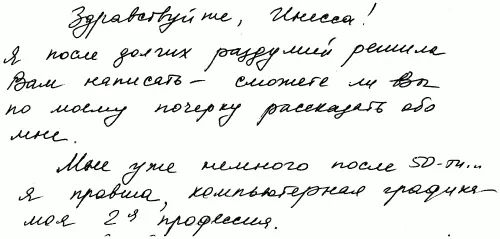 Здравствуйте, Инесса!
Я после долгих раздумий решила
Вам написать – сможете ли Вы
по моему почерку рассказать обо
мне.
Мне уже немного после 50-ти...
я правша, компьютерная графика-
моя 2я профессия.